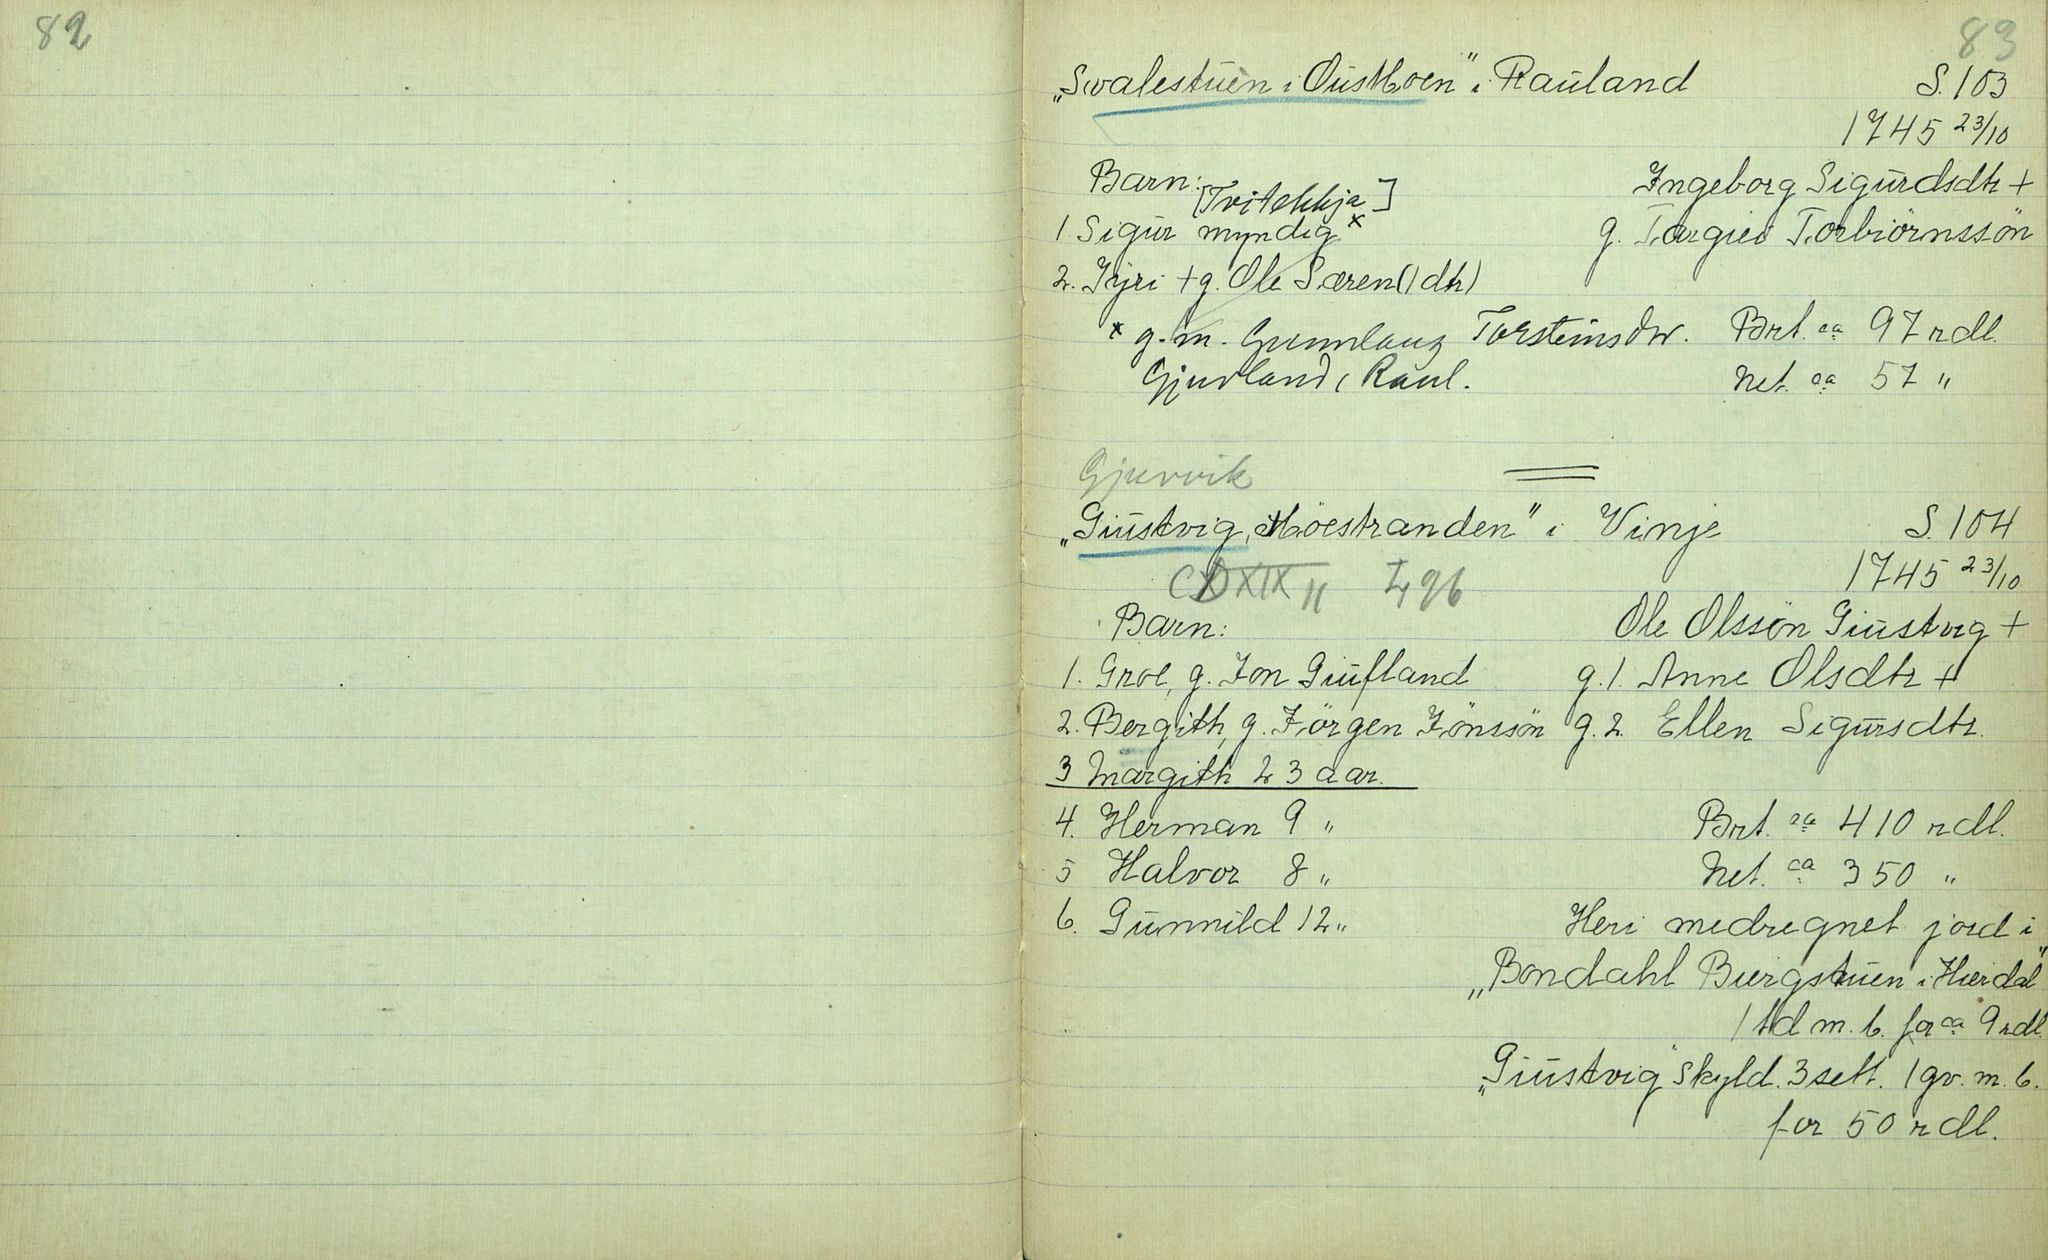 82
83
„Svalestuen i Øustbøen" i Rauland S. 103
1745 23/10
Barn: Ingeborg Sigurdsdtr +
[Tvitekkja]
1. Sigur myndig x g. Targiei Torbiørnssøn
2. Jyri + g. Ole Særen (1 dtr)
x g. m. Gunnlaug Torsteinsdtr. Brt. ca 97 rdl.
Gjuvland i Raul. Net. ca 57 "
Gjuvvik
„Giustvig, Møestranden" i Vinje S. 104
1745 23/10
CDXIX II I 96
Barn: Ole Olssøn Giustvig +
1. Groe, g. Jon Giufland g. 1. Anne Olsdtr +
2. Bergith, g. Jørgen Jønssøn g. 2. Ellen Sigursdtr.
3 Margith 23 aar.
4. Herman 9 " Brt. ca 410 rdl.
5 Halvor 8 " Net. ca 350 "
6. Gunnild 12 " Heri medregnet jord i
„Bondahl Buergstuen i Hierdal"
1 td m. b. for ca 9 rdl.
„Giustvig" skyld. 3 sett. 1 gv. m. b.
for 50 rdl.